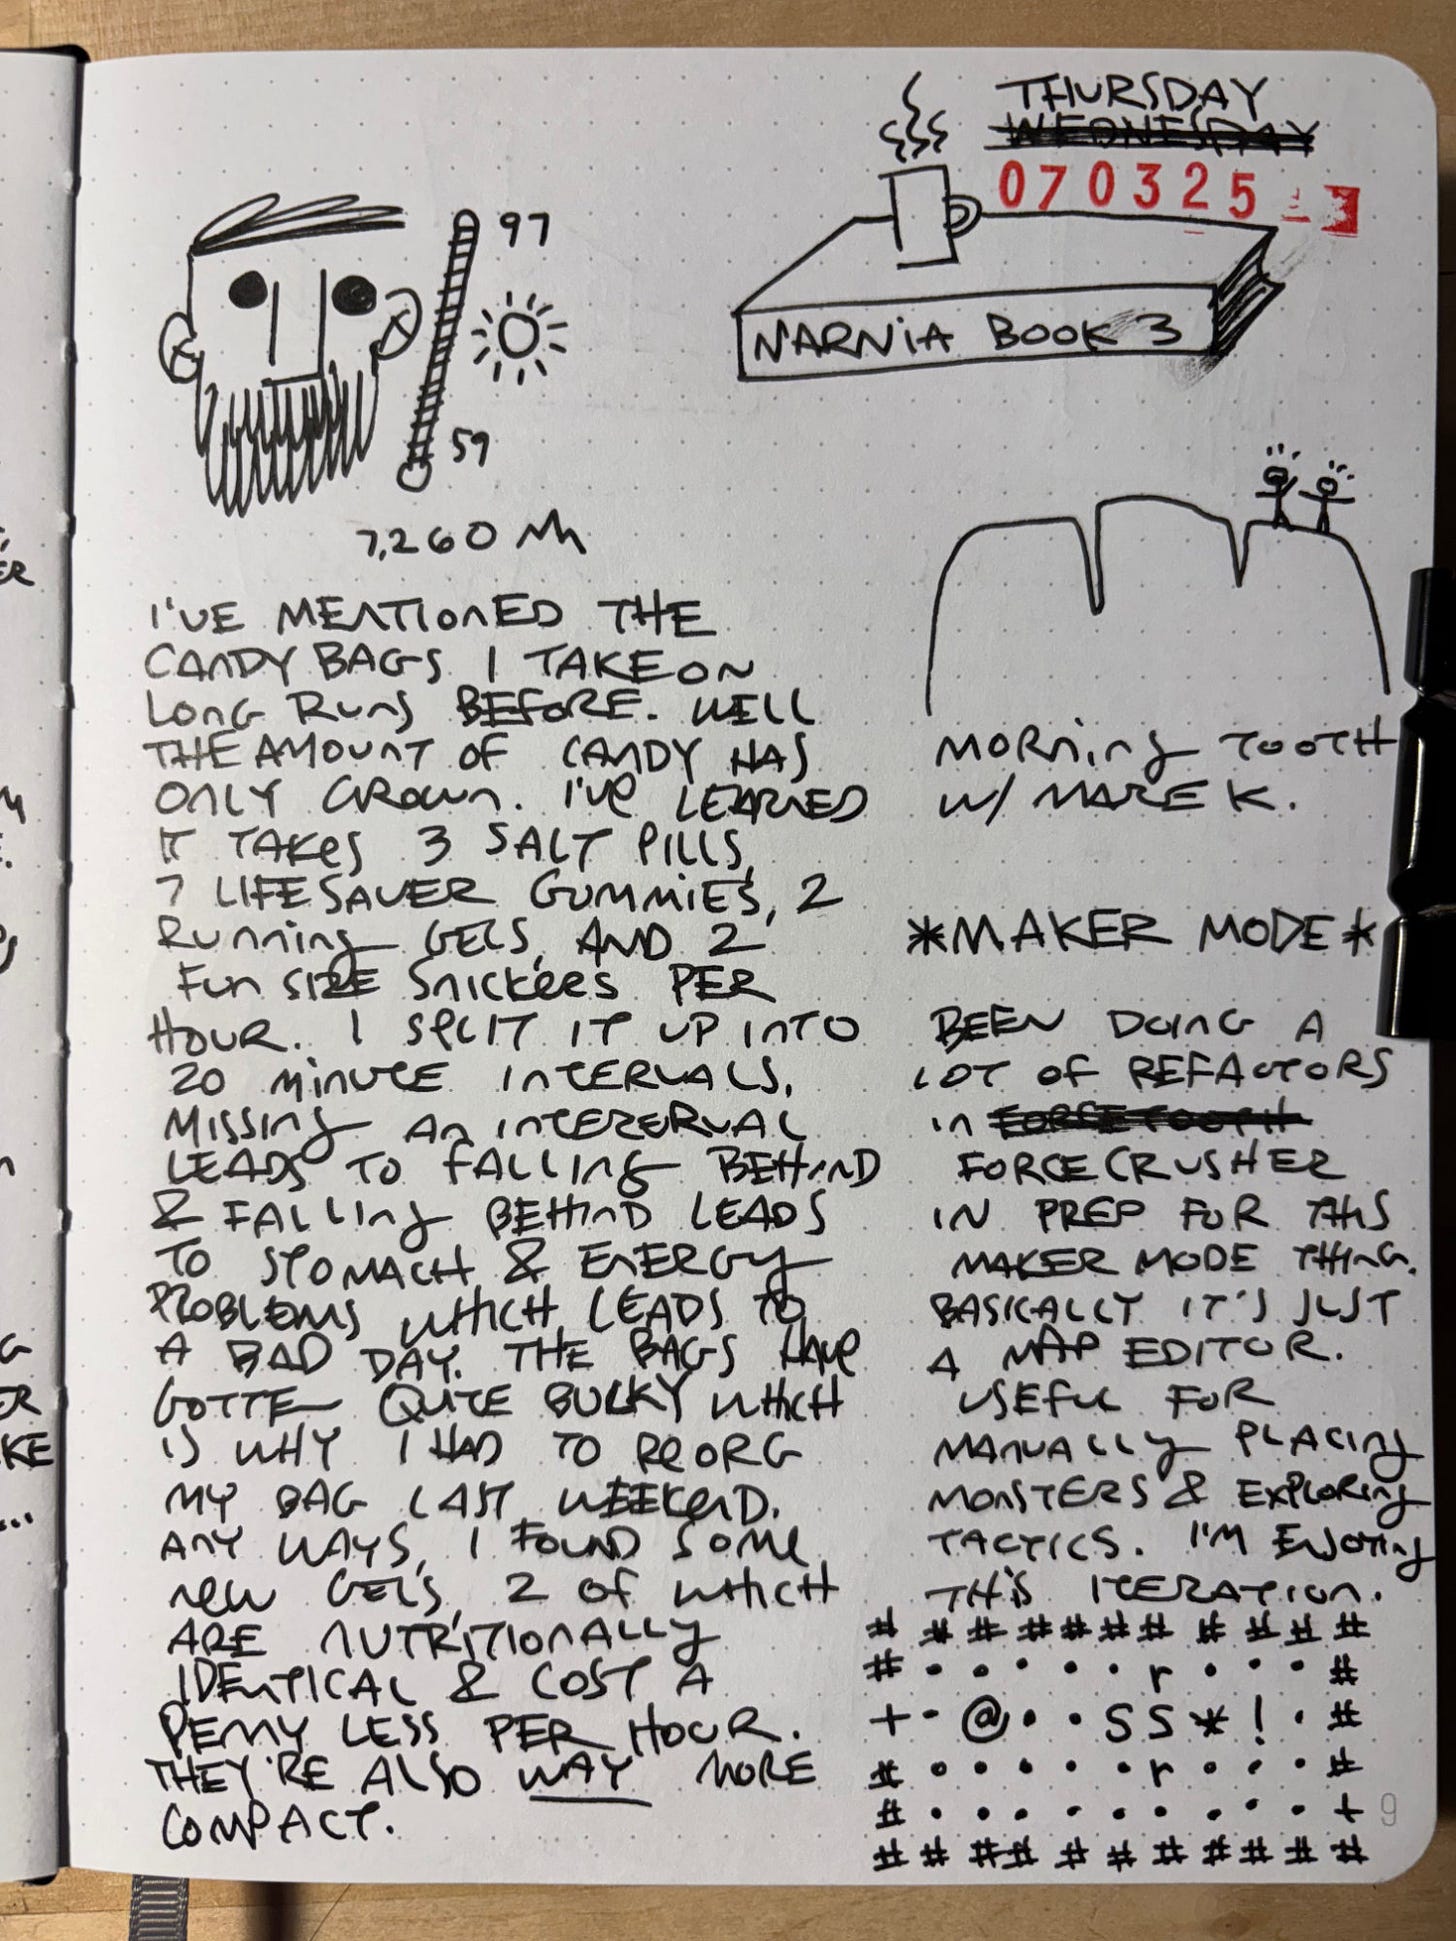 THURSDAY
WEDNESDAY
070325
97
59
NARNIA BOOK 3
7,260
I'VE MENTIONED THE
CANDY BAGS I TAKE ON
LONG RUNS BEFORE. WELL
THE AMOUNT OF CANDY HAS
ONLY GROWN. I'VE LEARNED
IT TAKES 3 SALT PILLS,
7 LIFESAVER GUMMIES, 2
RUNNING GELS, AND 2
FUN SIZE SNICKERS PER
HOUR. I SPLIT IT UP INTO
20 MINUTE INTERVALS.
MISSING AN INTERERVAL
LEADS TO FALLING BEHIND
& FALLING BEHIND LEADS
TO STOMACH & ENERGY
PROBLEMS WHICH LEADS TO
A BAD DAY. THE BAGS HAVE
GOTTEN QUITE BULKY WHICH
IS WHY I HAD TO REORG
MY BAG LAST WEEKEND.
ANY WAYS, I FOUND SOME
NEW GELS, 2 OF WHICH
ARE NUTRITIONALLY
IDENTICAL & COST A
PENNY LESS PER HOUR.
THEY'RE ALSO WAY MORE
COMPACT.
MORNING TOOTH
W/ MARE K.
*MAKER MODE*
BEEN DOING A
LOT OF REFACTORS
IN FORGETOOTH
FORGECRUSHER
IN PREP FOR THIS
MAKER MODE THING.
BASICALLY IT'S JUST
A MAP EDITOR.
USEFUL FOR
MANUALLY PLACING
MONSTERS & EXPLORING
TACTICS. I'M ENJOYING
THIS ITERATION.
# # # # # # # # # # #
# . . . . . r . . . #
+ . @ . . S S * ! . #
# . . . . . r . . . #
# . . . . . . . . . +
# # # # # # # # # # #
9